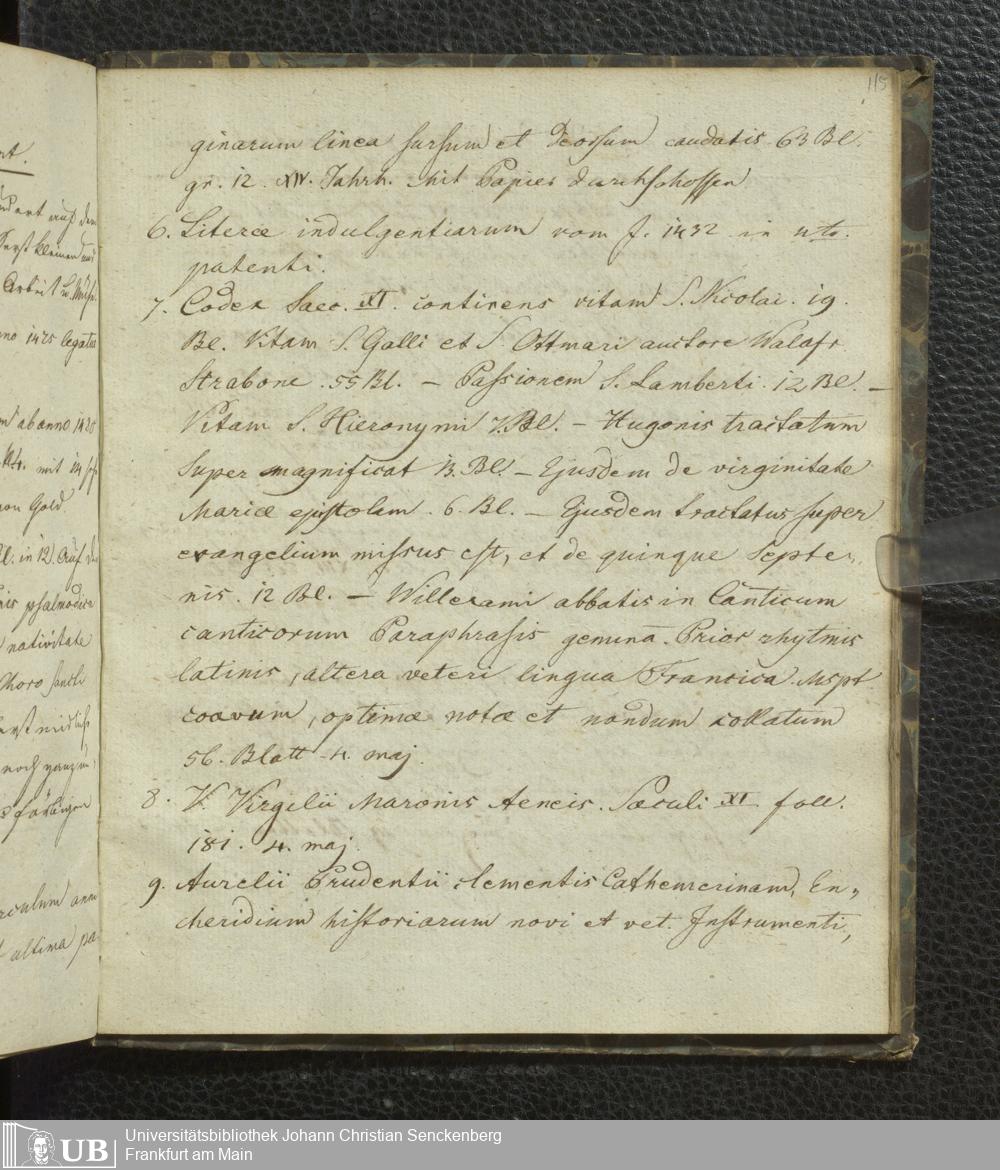 115
ginarum linea sursum et deorsum caudatis. 63 Bl.
gr. 12. XIV. Jahrh. Mit Papier durchschossen
6. Literæ indulgentiarum vom J. 1432 in
patenti.
7. Codex Saec. XI. continens vitam S. Nicolai. 19.
Bl. Vitam S. Galli et S. Ottmari auctore Walafr.
Strabone. 55 Bl. – Passionem S. Lamberti. 12 Bl. –
Vitam S. Hieronymi 7. Bl. – Hugonis tractatum
super magnificat 13. Bl. – Ejusdem de virginitate
Mariæ epistolam. 6. Bl. – Ejusdem tractatus super
evangelium missus est, et de quinque Septe„
nis. 12 Bl. – Willerami abbatis in Canticum
canticorum Paraphrasis gemina. Prior rhytmis
latinis, altera veteri lingua Francica. Mspt
coævum, optimæ notæ et nondum collatum
56. Blatt 4. maj.
8. Virgilii Maronis Aeneis. Sæculi XI foll.
181. 4. maj.
9. Aurelii Prudentii Clementis Cathemerinam, En„
cheridium historiarum novi et vet. Instrumenti,
nt.
auf dem
kleinen
Arbeit u.
anno 1425 legatus
ab anno 1425
mit 14
von Gold.
Bl. in 12. Auf
psalmodiæ
nativitate
Choro
noch
ultima pa
UB
Universitätsbibliothek Johann Christian Senckenberg
Frankfurt am Main